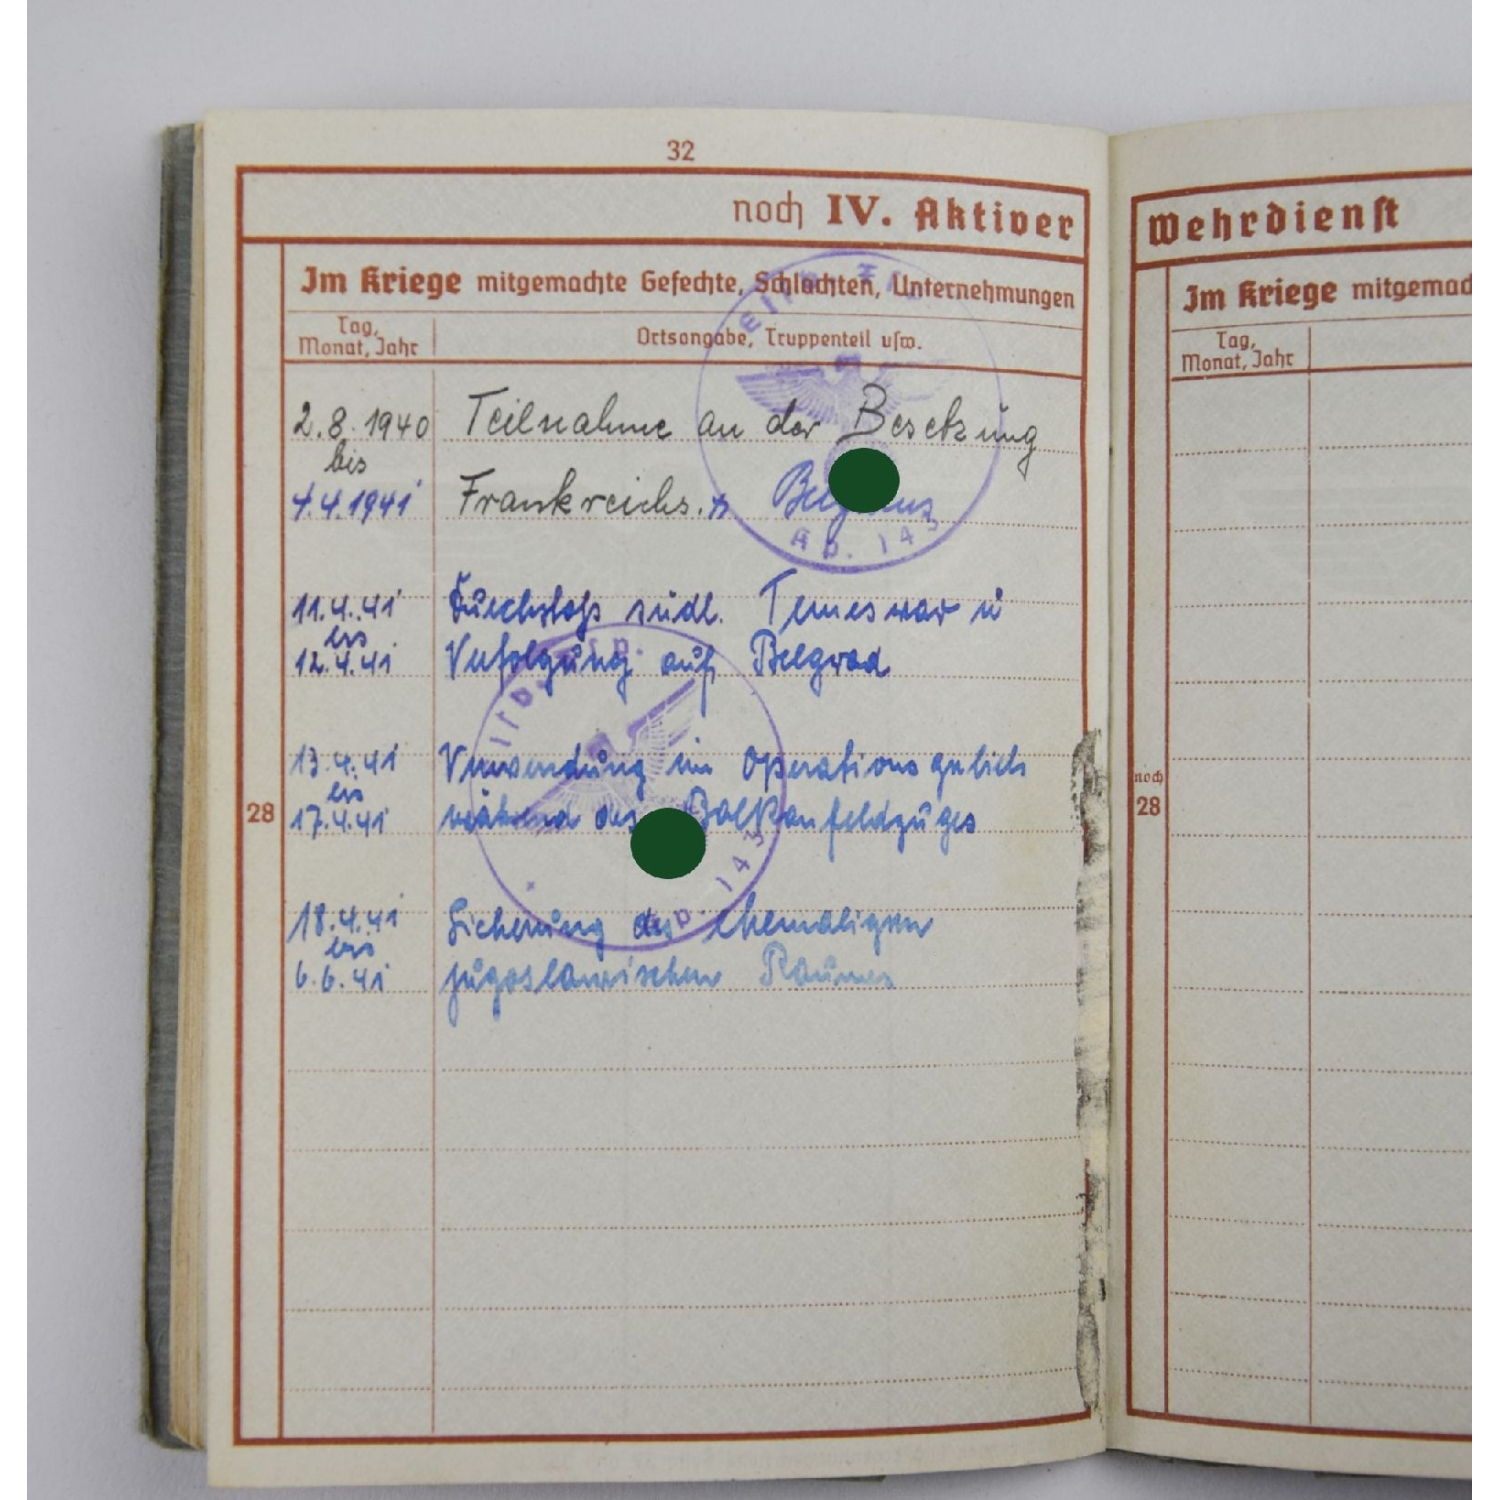 32
noch IV. Aktiver
Im Kriege mitgemachte Gefechte, Schlachten, Unternehmungen
Tag, Monat, Jahr
Ortsangabe, Truppenteil usw.
2.8.1940 Teilnahme an der Besetzung
bis
4.4.1941 Frankreichs.
11.4.41 Durchstoß südl. Temeswar u
bis
12.4.41 Verfolgung auf Belgrad
13.4.41 Verwendung im Operationsgebiet
bis
28
17.4.41 während des Balkanfeldzuges
18.4.41 Sicherung des ehemaligen
bis
6.6.41 jugoslawischen Raumes
Ab. 143
Ab. 143
Wehrdienst
Im Kriege
Tag, Monat, Jahr
noch
28